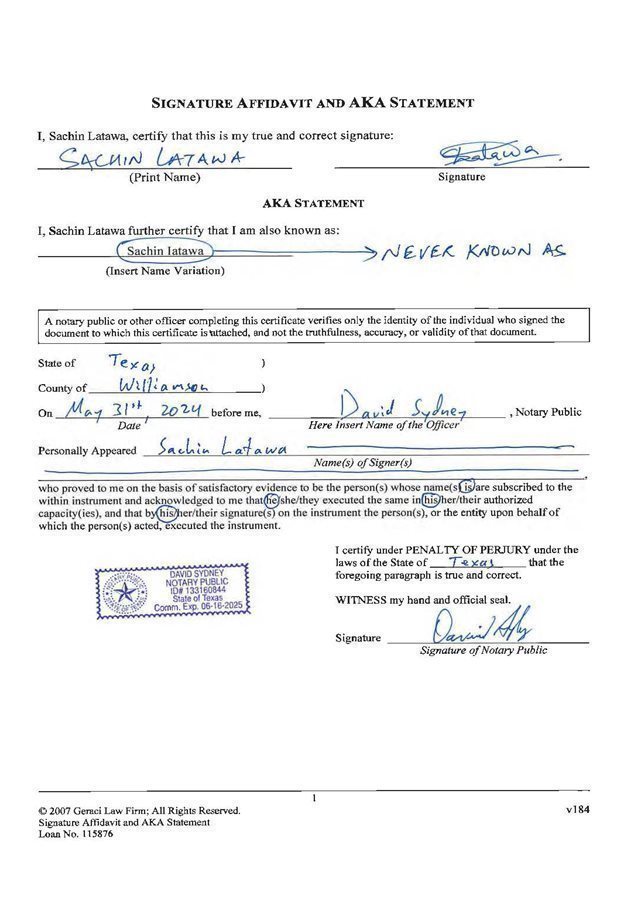 SIGNATURE AFFIDAVIT AND AKA STATEMENT
I, Sachin Latawa, certify that this is my true and correct signature:
SACHIN LATAWA
(Print Name)
Latawa
Signature
AKA STATEMENT
I, Sachin Latawa further certify that I am also known as:
Sachin Iatawa NEVER KNOWN AS
(Insert Name Variation)
A notary public or other officer completing this certificate verifies only the identity of the individual who signed the
document to which this certificate is attached, and not the truthfulness, accuracy, or validity of that document.
State of Texas )
County of Williamson )
On May 31st, 2024 before me, David Sydney, Notary Public
Date Here Insert Name of the Officer
Personally Appeared Sachin Latawa
Name(s) of Signer(s)
who proved to me on the basis of satisfactory evidence to be the person(s) whose name(s) is/are subscribed to the
within instrument and acknowledged to me that he/she/they executed the same in his/her/their authorized
capacity(ies), and that by his/her/their signature(s) on the instrument the person(s), or the entity upon behalf of
which the person(s) acted, executed the instrument.
DAVID SYDNEY
NOTARY PUBLIC
ID# 133160844
State of Texas
Comm. Exp. 06-16-2025
I certify under PENALTY OF PERJURY under the
laws of the State of Texas that the
foregoing paragraph is true and correct.
WITNESS my hand and official seal.
Signature
Signature of Notary Public
1
© 2007 Geraci Law Firm; All Rights Reserved. v184
Signature Affidavit and AKA Statement
Loan No. 115876